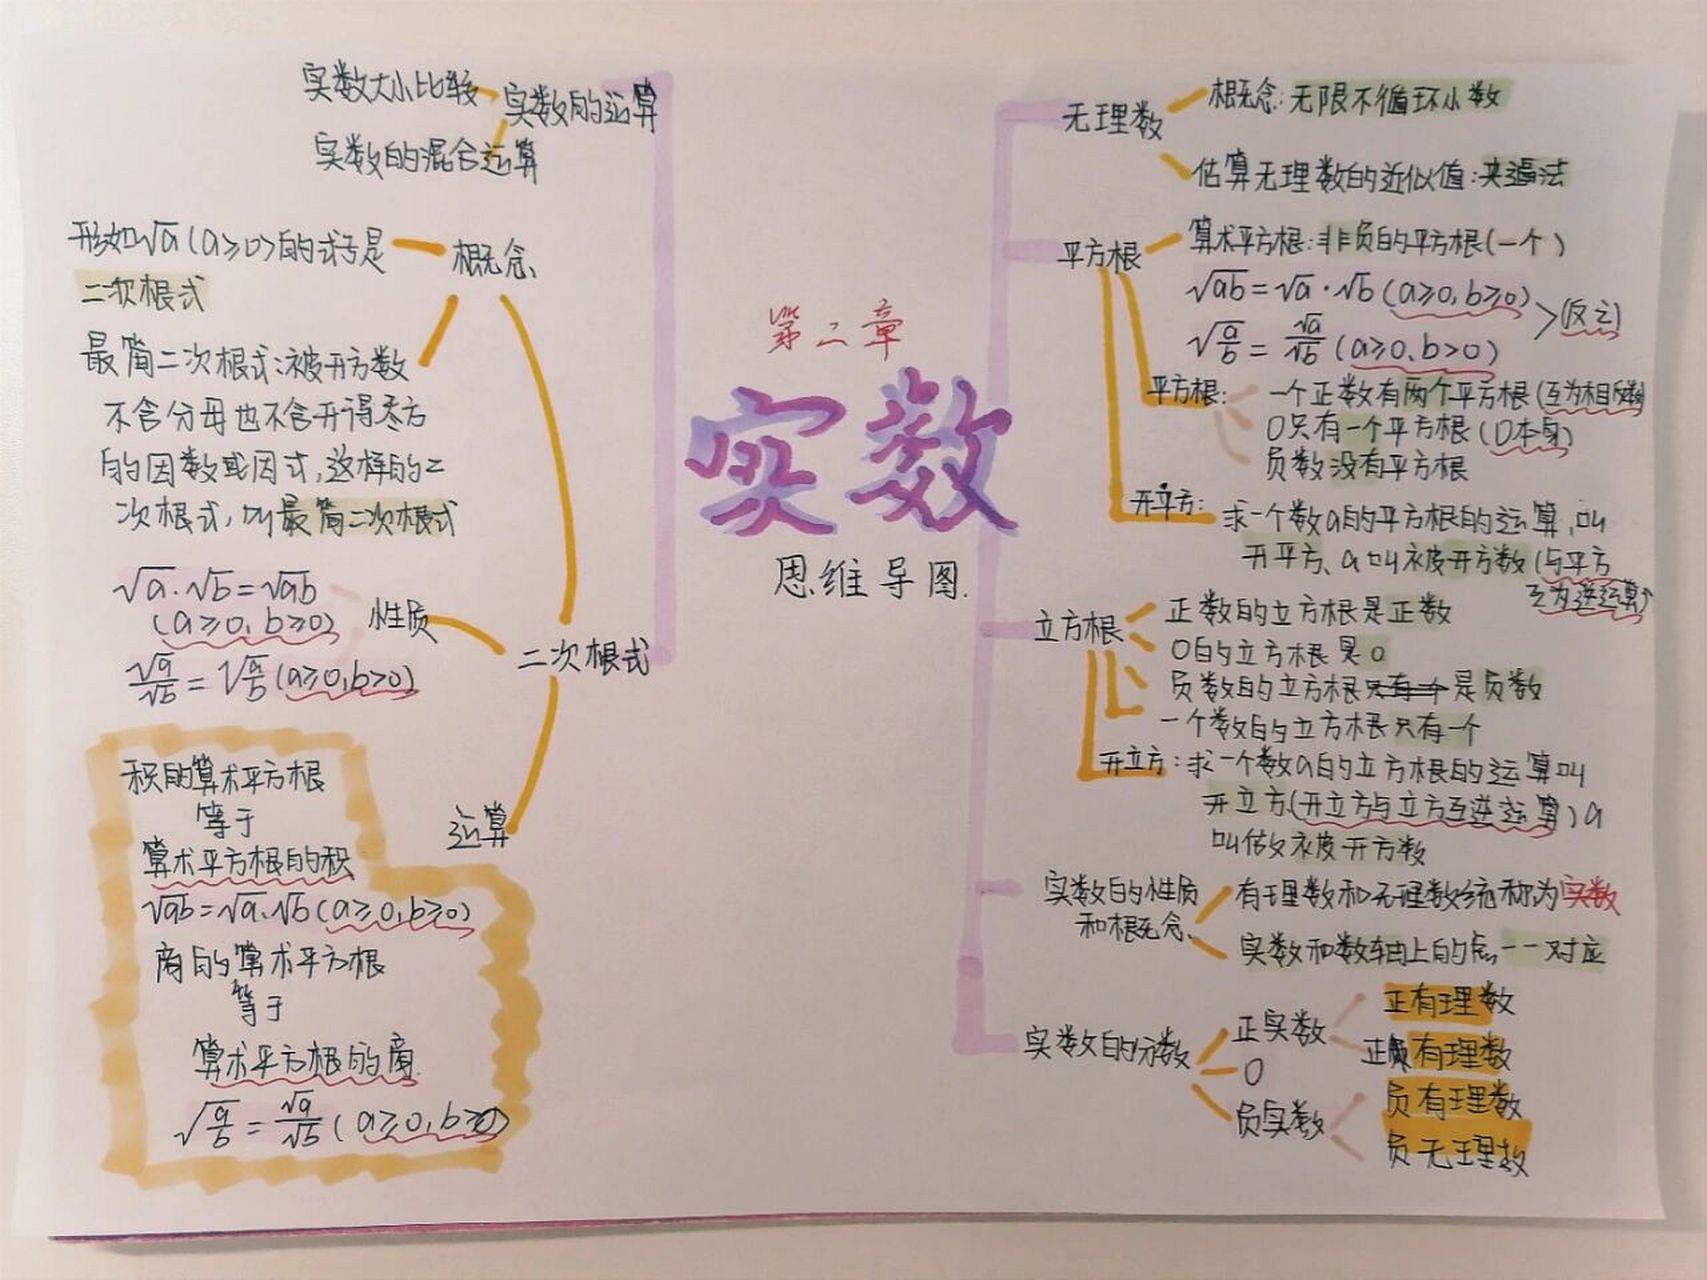 第二章
实数
思维导图.
实数大小比较
实数的运算
实数的混合运算
形如√a(a≥0)的式子是
二次根式
概念
最简二次根式:被开方数
不含分母也不含开得尽方
的因数或因式,这样的二
次根式,叫最简二次根式
√a·√b=√ab
(a≥0,b≥0)
性质
√a/√b=√(a/b)(a≥0,b>0)
二次根式
运算
积的算术平方根
等于
算术平方根的积
√ab=√a·√b(a≥0,b≥0)
商的算术平方根
等于
算术平方根的商.
√(a/b)=√a/√b(a≥0,b>0)
无理数
概念:无限不循环小数
估算无理数的近似值:夹逼法
平方根
算术平方根:非负的平方根(一个)
√ab=√a·√b(a≥0,b≥0)
√(a/b)=√a/√b(a≥0,b>0)
>(反之)
平方根:
一个正数有两个平方根(互为相反数)
0只有一个平方根(0本身)
负数没有平方根
开立方:
求一个数a的平方根的运算,叫
开平方、a叫被开方数(与平方
互为逆运算)
立方根
正数的立方根是正数
0的立方根是0
负数的立方根只有一个是负数
一个数的立方根只有一个
开立方:求一个数a的立方根的运算叫
开立方(开立方与立方互逆运算)a
叫做被开方数
实数的性质
和概念
有理数和无理数统称为实数
实数和数轴上的点一一对应
实数的分数
正实数
正有理数
正有理数
0
负实数
负有理数
负无理数